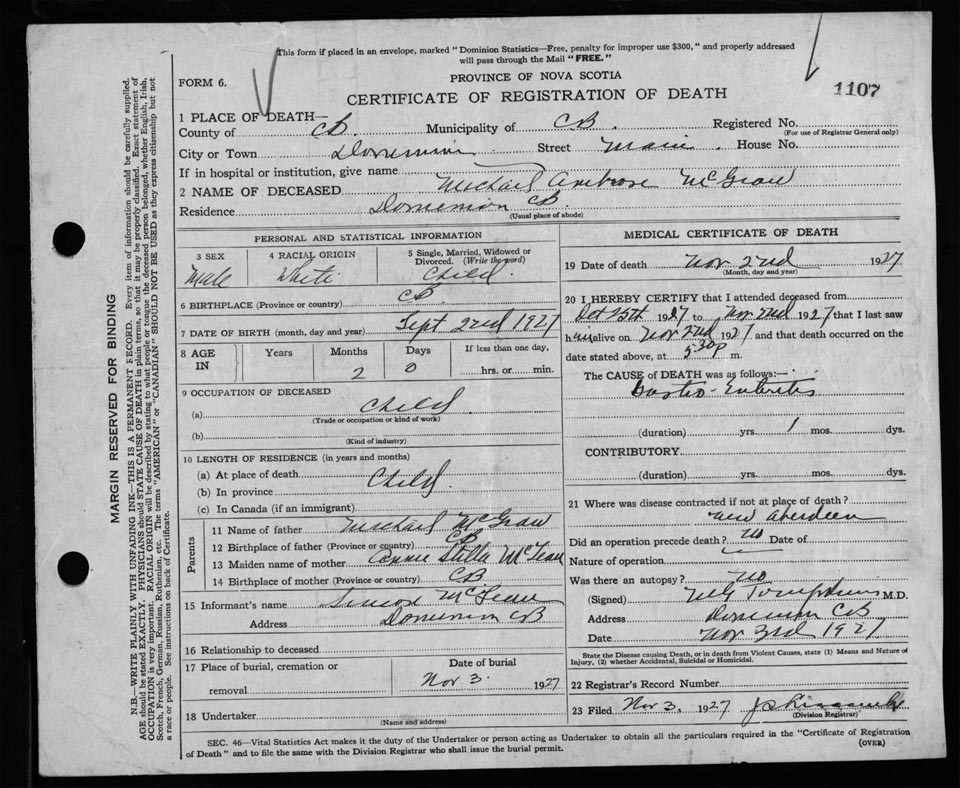 This form if placed in an envelope, marked "Dominion Statistics—Free, penalty for improper use $300," and properly addressed
will pass through the Mail "FREE."
FORM 6.
PROVINCE OF NOVA SCOTIA
CERTIFICATE OF REGISTRATION OF DEATH
1107
1 PLACE OF DEATH—
County of CB. Municipality of CB. Registered No.
(For use of Registrar General only)
City or Town Dominion Street Main. House No.
If in hospital or institution, give name
2 NAME OF DECEASED Michael Ambrose McGraw
Residence Dominion CB.
(Usual place of abode)
PERSONAL AND STATISTICAL INFORMATION
3 SEX 4 RACIAL ORIGIN 5 Single, Married, Widowed or
Divorced. (Write the word)
Male White Child.
6 BIRTHPLACE (Province or country) CB.
7 DATE OF BIRTH (month, day and year) Sept 2nd 1927
8 AGE IN Years Months Days If less than one day,
2 0 hrs. or min.
9 OCCUPATION OF DECEASED
(a) Child
(Trade or occupation or kind of work)
(b)
(Kind of industry)
10 LENGTH OF RESIDENCE (in years and months)
(a) At place of death
(b) In province Child
(c) In Canada (if an immigrant)
Parents
11 Name of father Michael McGraw
12 Birthplace of father (Province or country) CB
13 Maiden name of mother Stella
14 Birthplace of mother (Province or country) CB
15 Informant's name
Address Dominion CB
16 Relationship to deceased
17 Place of burial, cremation or
removal
Date of burial
Nov 3. 1927
18 Undertaker
(Name and address)
MEDICAL CERTIFICATE OF DEATH
19 Date of death Nov 2nd 1927
(Month, day and year)
20 I HEREBY CERTIFY that I attended deceased from
Oct 25th 1927 to Nov 2nd 1927 that I last saw
him alive on Nov 2nd 1927 and that death occurred on the
date stated above, at 5 30 p m.
The CAUSE of DEATH was as follows:—
Gastro-Enteritis
(duration) yrs. 1 mos. dys.
CONTRIBUTORY
(duration) yrs. mos. dys.
21 Where was disease contracted if not at place of death?
New Aberdeen
Did an operation precede death? No Date of
Nature of operation
Was there an autopsy? No
(Signed) Tompkins M.D.
Address Dominion CB
Date Nov 3rd 1927
State the Disease causing Death, or in death from Violent Causes, state (1) Means and Nature of
Injury, (2) whether Accidental, Suicidal or Homicidal.
22 Registrar's Record Number
23 Filed Nov 3. 1927
(Division Registrar)
SEC. 46—Vital Statistics Act makes it the duty of the Undertaker or person acting as Undertaker to obtain all the particulars required in the "Certificate of Registration
of Death" and to file the same with the Division Registrar who shall issue the burial permit.
(OVER)
MARGIN RESERVED FOR BINDING
N.B.—WRITE PLAINLY WITH UNFADING INK—THIS IS A PERMANENT RECORD. Every item of information should be carefully supplied.
AGE should be stated EXACTLY. PHYSICIANS should STATE CAUSE OF DEATH in plain terms, so that it may be properly classified. Exact statement of
OCCUPATION is very important. RACIAL ORIGIN will be described by stating to what people or tongue the deceased person belonged, whether English, Irish,
Scotch, French, German, Russian, Ruthenian, etc. The terms "AMERICAN" or "CANADIAN" SHOULD NOT BE USED as they express citizenship but not
a race or people. See instructions on back of Certificate.